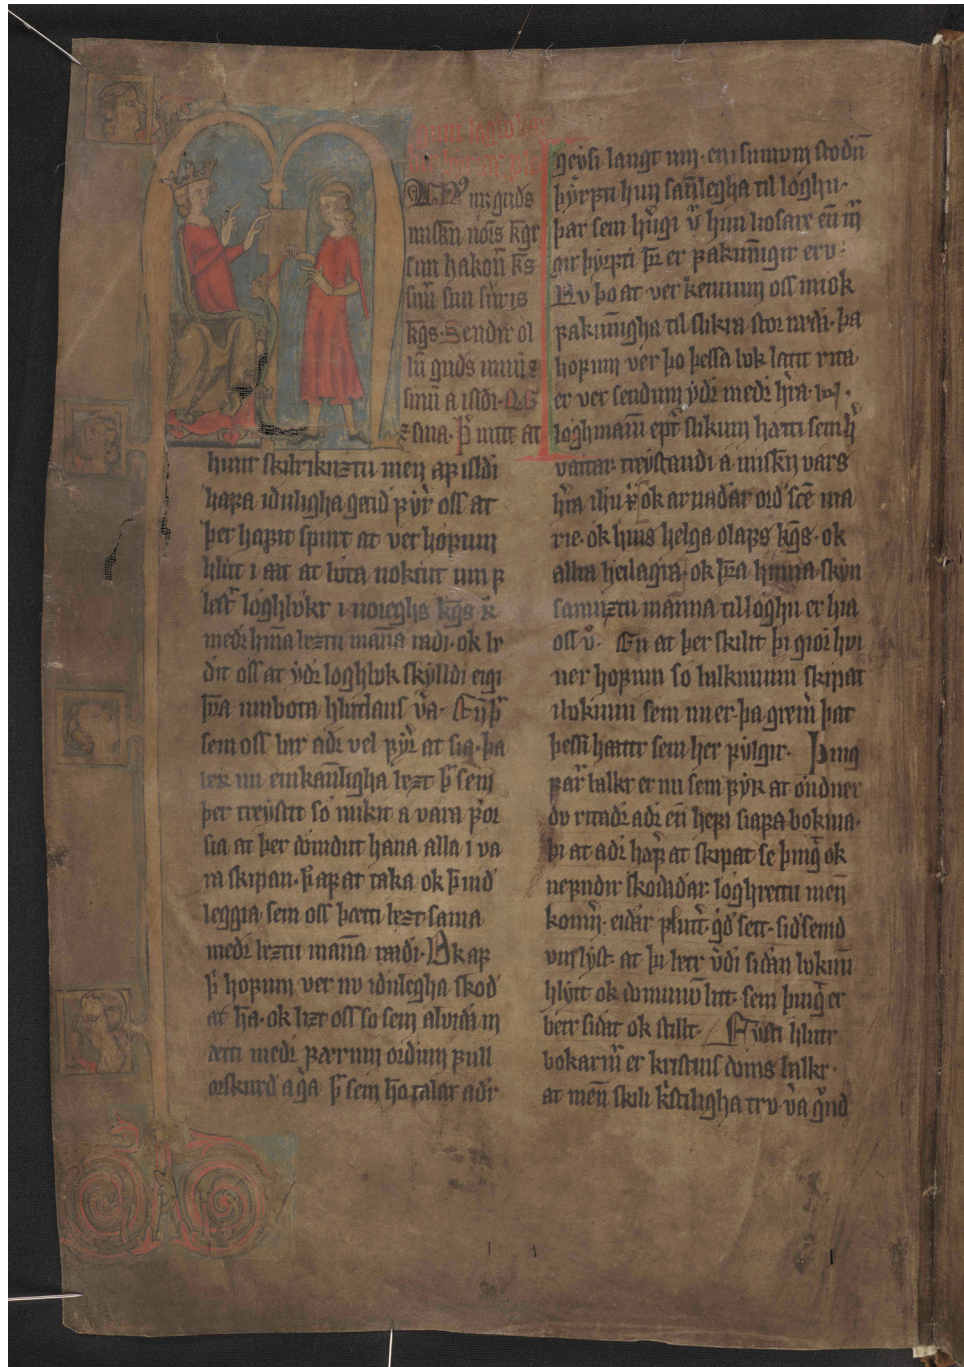 guds
miskun noꝛ̅s kg̅r
sun hakon̅ k̅s
sun̅ sun su̓ris
kg̅s. Sendir ol
lu̅ guds uinu̅ ⁊
sinu̅ a isldi. Q. G.
⁊ sina. þ̅ uitit at
hinir skilrikuztu men af isldi
hafa iduligha gæid fyꝛ̓ oss at
þer hafit spurt at ver hofum
hlut i att at bøta nokut um f
lest̓ lǫghbøkr i noreghs kg̅s ꝛ̓
medꝛ hin̅a beztu man̅a radi. ok be
dit oss at ydꝛ loghbok skylldi eigi
þr̅a umbota hlutlaus v̓a. En̅ þ̅
sem oss bar adꝛ vel fyꝛ̓ at sia. þa
ler nu einkan̅ligha bezt þ̅ sem
þer treystit so mikit a vara foꝛ
sia at þer bindut hana alla i va
ra skipan. þ̅ af at taka ok þ̅ uid̓
leggia sem oss þætti bezt sama
medꝛ beztu man̅a radi. Ok af
þ̅ hofum ver nu idulegha skod
at h̅a. ok lizt oss so sem alvida m
ætti medꝛ færrum oꝛdum full
oꝛskurd a g̓a þ̅ sem h̅o talar adꝛ
geysi langt um. en i sumum stodu̅
þyrfti hun san̅legha til loghu.
þar sem hu̓gi v̓ hun liosare en̅ m̅
gir þyrfti þr̅ er fakun̅igir erv.
Nv þo at ver kennum oss miok
fakun̅igha til slikra stor rædi. þa
hofum ver þo þessa bok latit rita
er ver sendum ydꝛ medꝛ h̓ra. ioṅ.
lǫghman̅i ept̓ slikum hætti sem h̓
vattar. treystandi a miskun vars
h̓ra ihu x̓ ok arnadar oꝛd sc̅e ma
rie. ok hins helga olafs kg̅s. ok
allra heilagra. ok þr̅a hinna skyn
samuztu manna til lǫghu er hia
oss v̓. En at þer skilit þi gioꝛ hvi
ver hofum so balkunum skipat
i bokinni sem nu er. þa grein̓ þat
þessi hattr sem her fylgir. Þing
far̓ balkr er nu sem fyꝛ at ǫnduer
du ritadꝛ adꝛ en̅ hefi siafa bokina.
þi at adꝛ haf̓ at skipat se þing̓ ok
nefndir skodadar. lǫghrettu men̅
komn̓. eidar fluttir. g̓d sett. sid semd
vus lyst. at þa betr v̓di sidan bokin̅i
hlytt ok domum̅ litt. sem þing̓ er
betr sidat ok stillt. Fyꝛsti hlutr
bokarin̅ er kristins doms balkr.
at men̅ skili k̓stiligha trv v̓a g̓nd